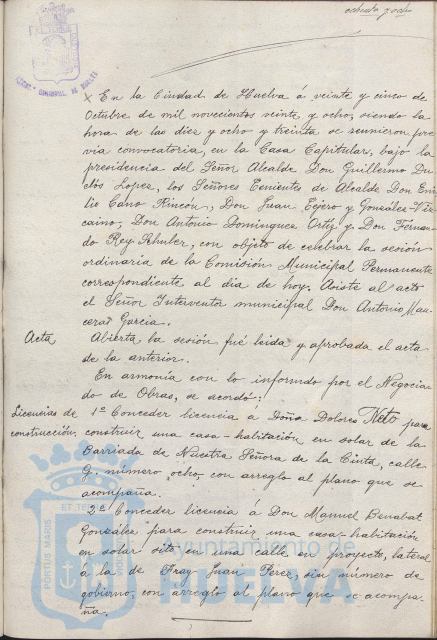 ochenta y ocho
En la Ciudad de Huelva á veinte y cinco de
Octubre de mil novecientos veinte y ocho, siendo la
hora de las diez y ocho y treinta se reunieron pre
via convocatoria, en la Casa Capitular, bajo la
presidencia del Señor Alcalde Don Guillermo Du
clós Lopez, los Señores Tenientes de Alcalde Don Emi
lio Cano Rincón, Don Juan Tejero y González Viz
caino, Don Antonio Dominguez Ortiz y Don Fernan
do Rey Schuler, con objeto de celebrar la sesión
ordinaria de la Comisión Municipal Permanente
correspondiente al día de hoy. Asiste al acto
el Señor Interventor municipal Don Antonio
García.
Acta Abierta la sesión fué leída y aprobada el acta
de la anterior.
En armonía con lo informado por el Negocia
do de Obras, se acordó:
Licencias de 1º Conceder licencia á Doña Dolores Neto para
construcción. construir una casa-habitación en solar de la
Barriada de Nuestra Señora de la Cinta, calle
número ocho, con arreglo al plano que se
acompaña.
2º Conceder licencia á Don Manuel Benabat
González para construir una casa-habitación
en solar sito en una calle en proyecto, lateral
á la de Fray Juan Perez, sin número de
gobierno, con arreglo al plano que se acompa-
ña.
PORTUS MARIS
Ayuntamiento de
HUELVA